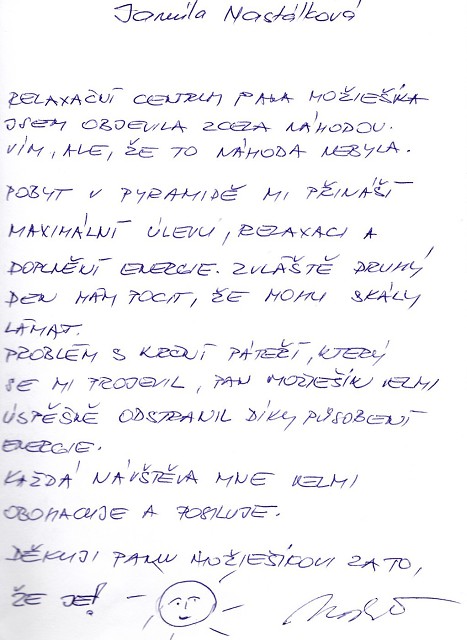 Jarmila Nastálková
RELAXAČNÍ CENTRUM PANA MOŽIEŠÍKA
JSEM OBJEVILA ZCELA NÁHODOU.
VÍM, ALE, ŽE TO NÁHODA NEBYLA.
POBYT V PYRAMIDĚ MI PŘINÁŠÍ
MAXIMÁLNÍ ÚLEVU, RELAXACI A
DOPLNĚNÍ ENERGIE. ZVLÁŠTĚ DRUHÝ
DEN MÁM POCIT, ŽE MOHU SKÁLY
LÁMAT.
PROBLÉM S KRČNÍ PÁTEŘÍ, KTERÝ
SE MI PROJEVIL, PAN MOŽIEŠÍK VELMI
ÚSPĚŠNĚ ODSTRANIL DÍKY PŮSOBENÍ
ENERGIE.
KAŽDÁ NÁVŠTĚVA MNE VELMI
OBOHACUJE A POSILUJE.
DĚKUJI PANU MOŽIEŠÍKOVI ZA TO,
ŽE JE!